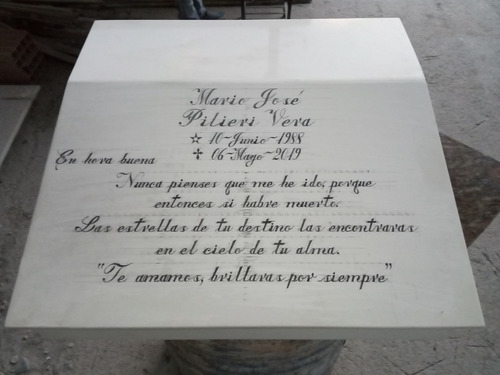 Mario José
Pilieri Vera
☆ 10-Junio-1988
✝ 06-Mayo-2019
En hora buena
Nunca pienses que me he ido, porque
entonces si habre muerto.
Las estrellas de tu destino las encontraras
en el cielo de tu alma.
"Te amamos, brillaras por siempre"